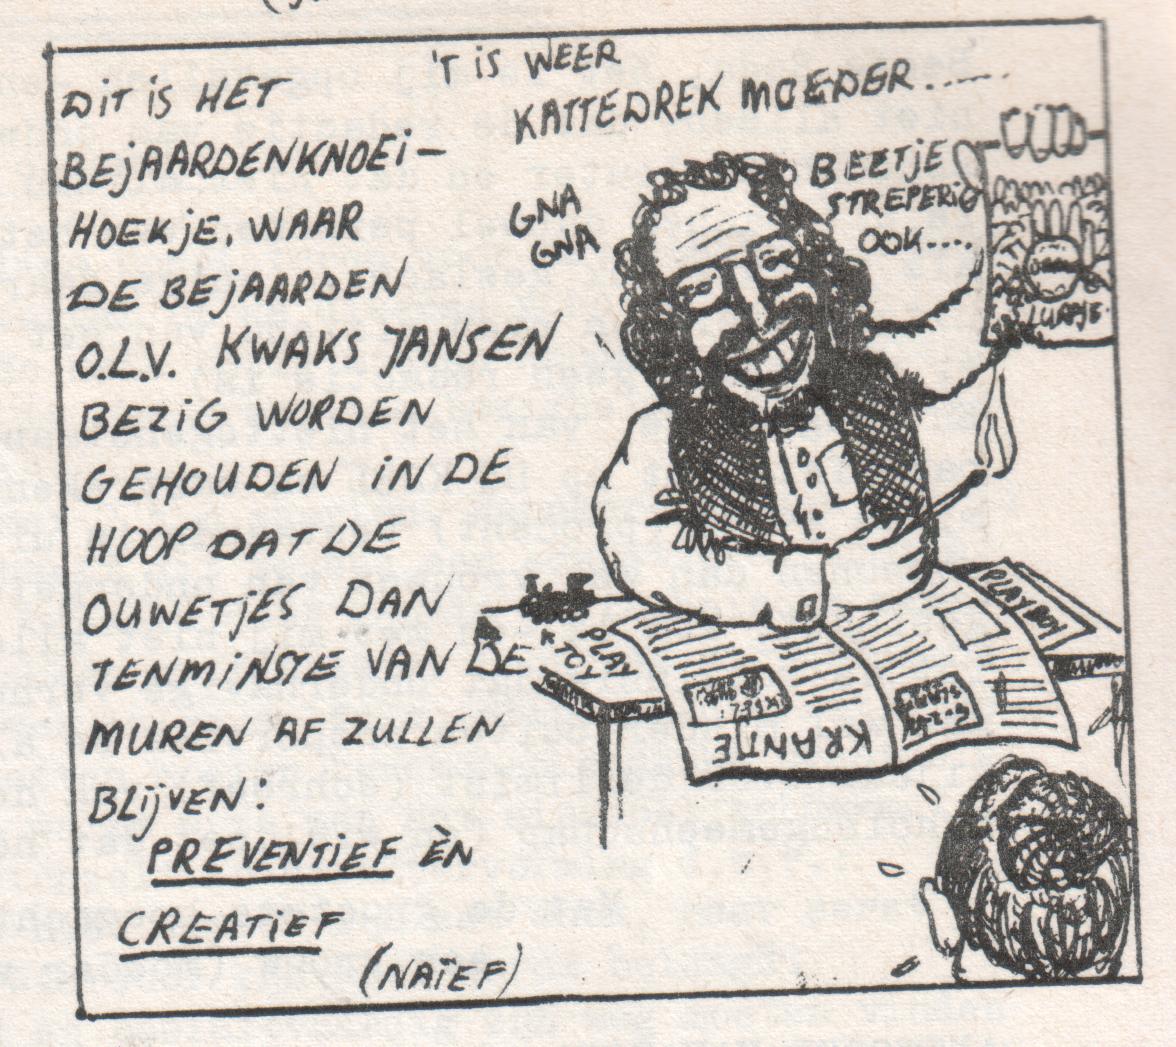 DIT IS HET
BEJAARDENKNOEI-
HOEKJE, WAAR
DE BEJAARDEN
O.L.V. KWAKS JANSEN
BEZIG WORDEN
GEHOUDEN IN DE
HOOP DAT DE
OUWETJES DAN
TENMINSTE VAN DE
MUREN AF ZULLEN
BLIJVEN:
PREVENTIEF ÈN
CREATIEF
(NAÏEF)
'T IS WEER
KATTEDREK MOEDER.....
GNA
GNA
BEETJE
STREPERIG
OOK....
LURPJE
PLAYBOY
PLAY
TOY
KRANTJE